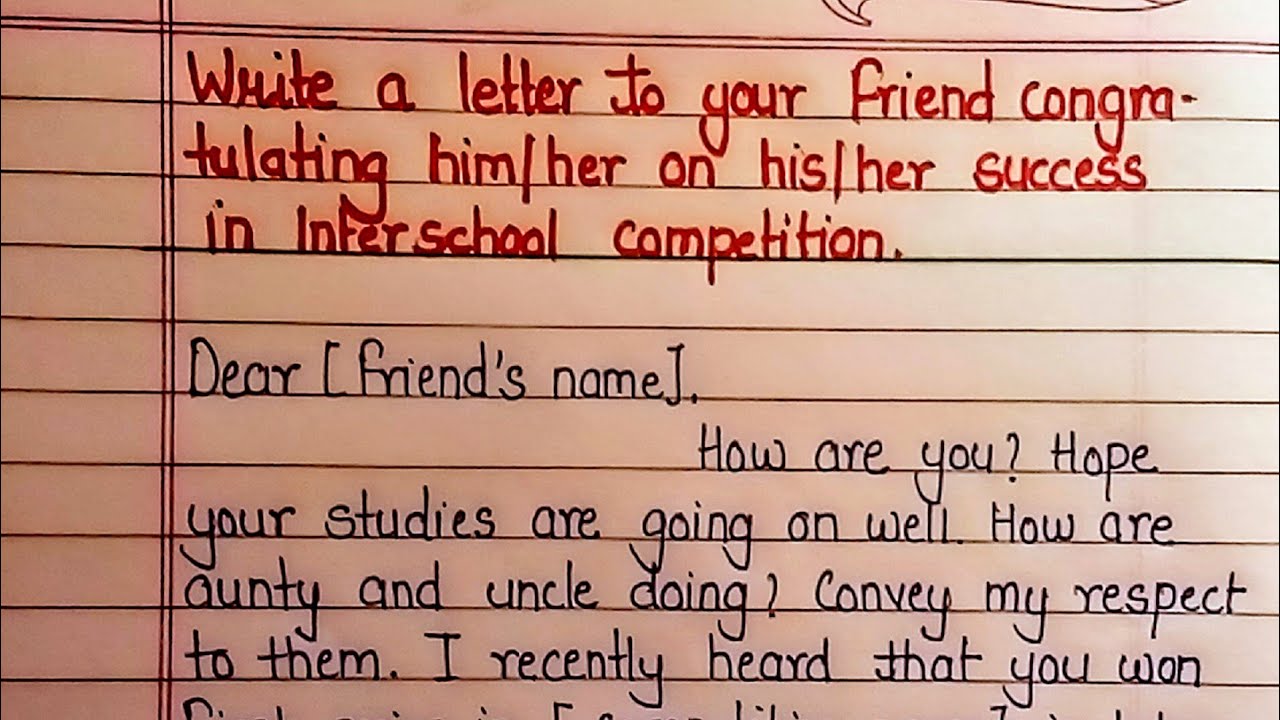 Write a letter to your friend congra-
tulating him/her on his/her success
in Interschool competition.
Dear [friend's name].
How are you? Hope
your studies are going on well. How are
aunty and uncle doing? Convey my respect
to them. I recently heard that you won